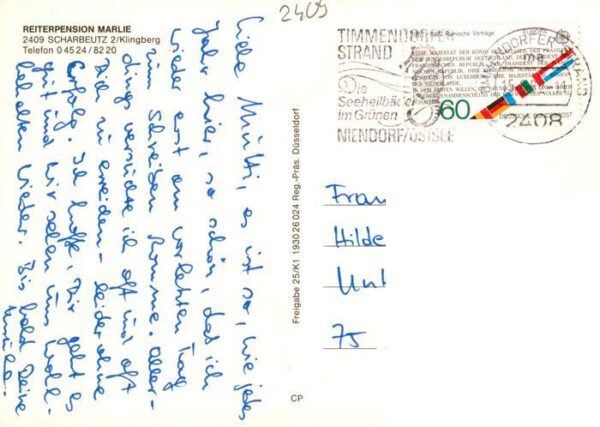 2409
REITERPENSION MARLIE
2409 SCHARBEUTZ 2/Klingberg
Telefon 0 45 24 / 82 20
Liebe Mutti, es ist so, wie jedes
Jahr hier, so schön, daß ich
wieder erst am vorletzten Tag
zum Schreiben komme. Aller-
dings versuchte ich oft und oft
Dich zu erreichen - leider ohne
Erfolg. Ich hoffe, Dir geht es
gut und wir sehen uns wohl-
behalten wieder. Bis bald Deine
Freigabe 25/K1 1 930 26 024 Reg.-Präs. Düsseldorf
CP
TIMMENDORFER
STRAND
Die
Seeheilbäder
im Grünen
NIENDORF/OSTSEE
Römische Verträge
60
DEUTSCHE BUNDESPOST
TIMMENDORFER STRAND
ma
2408
Frau
Hilde
Unt
75